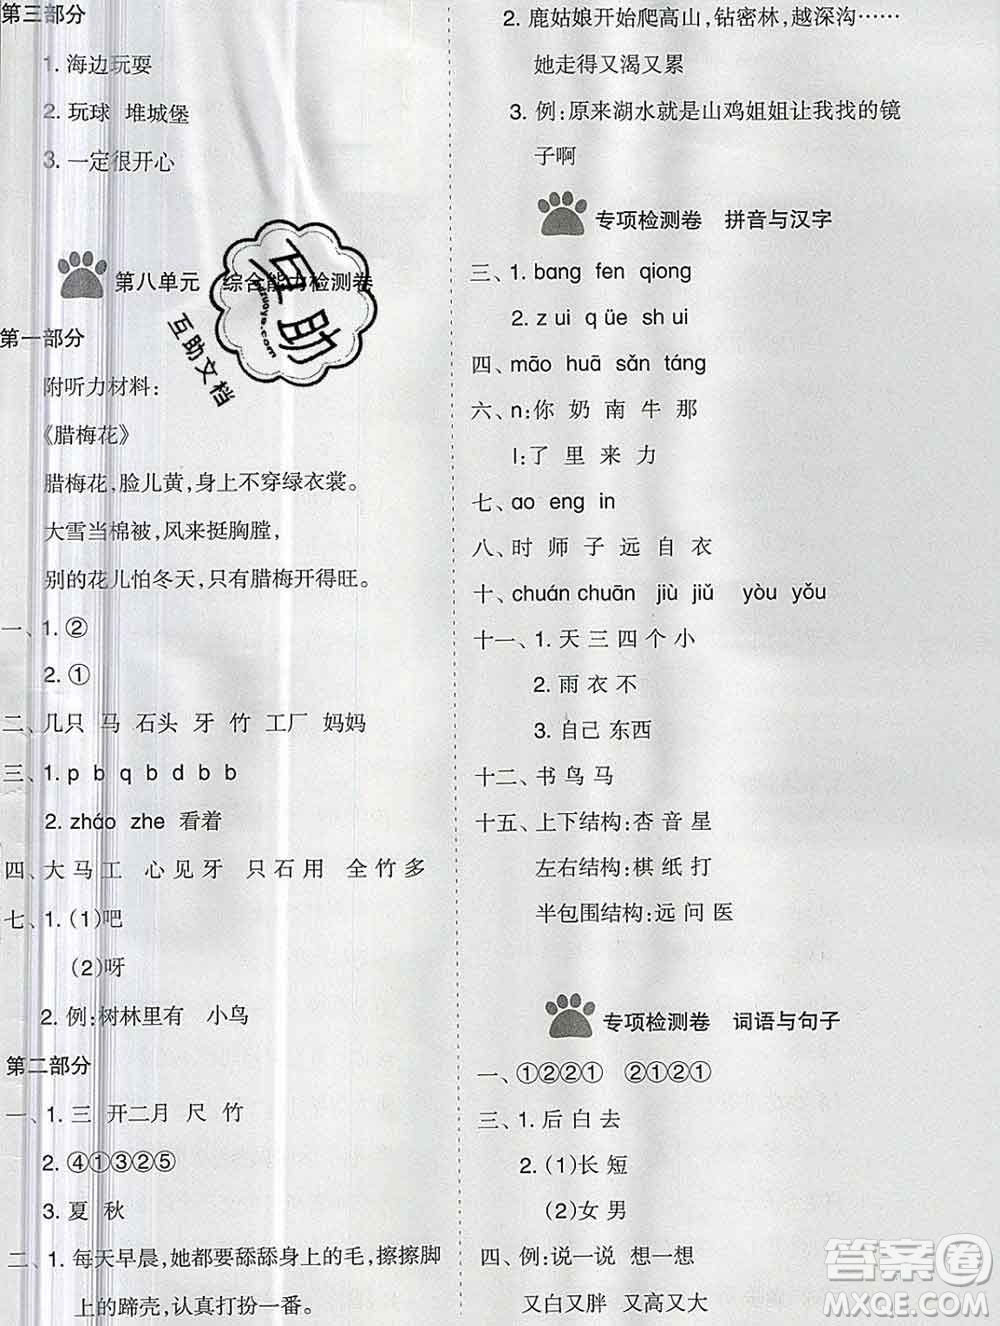 第三部分
1. 海边玩耍
2. 玩球 堆城堡
3. 一定很开心
第八单元 综合能力检测卷
第一部分
附听力材料：
《腊梅花》
腊梅花，脸儿黄，身上不穿绿衣裳。
大雪当棉被，风来挺胸膛，
别的花儿怕冬天，只有腊梅开得旺。
一、1. ②
2. ①
二、几只 马 石头 牙 竹 工厂 妈妈
三、1. p b q b d b b
2. zháo zhe 看着
四、大 马 工 心 见 牙 只 石 用 全 竹 多
七、1. (1)吧
(2)呀
2. 例：树林里有 小鸟
第二部分
一、1. 三 开 二 月 尺 竹
2. ④①③②⑤
3. 夏 秋
二、1. 每天早晨，她都要舔舔身上的毛，擦擦脚
上的蹄壳，认真打扮一番。
2. 鹿姑娘开始爬高山，钻密林，越深沟……
她走得又渴又累
3. 例：原来湖水就是山鸡姐姐让我找的镜
子啊
专项检测卷 拼音与汉字
三、1. bang fen qiong
2. z ui q üe sh ui
四、māo huā sǎn táng
六、n：你 奶 南 牛 那
l：了 里 来 力
七、ao eng in
八、时 师 子 远 自 衣
十、chuán chuān jiù jiǔ yòu yǒu
十一、1. 天 三 四 个 小
2. 雨 衣 不
3. 自己 东西
十二、书 鸟 马
十五、上下结构：杏 音 星
左右结构：棋 纸 打
半包围结构：远 问 医
专项检测卷 词语与句子
一、①②②① ②①②①
三、1. 后 白 去
2. (1)长 短
(2)女 男
四、例：说一说 想一想
又白又胖 又高又大
互助
互助文档
答案圈
MXQE.COM